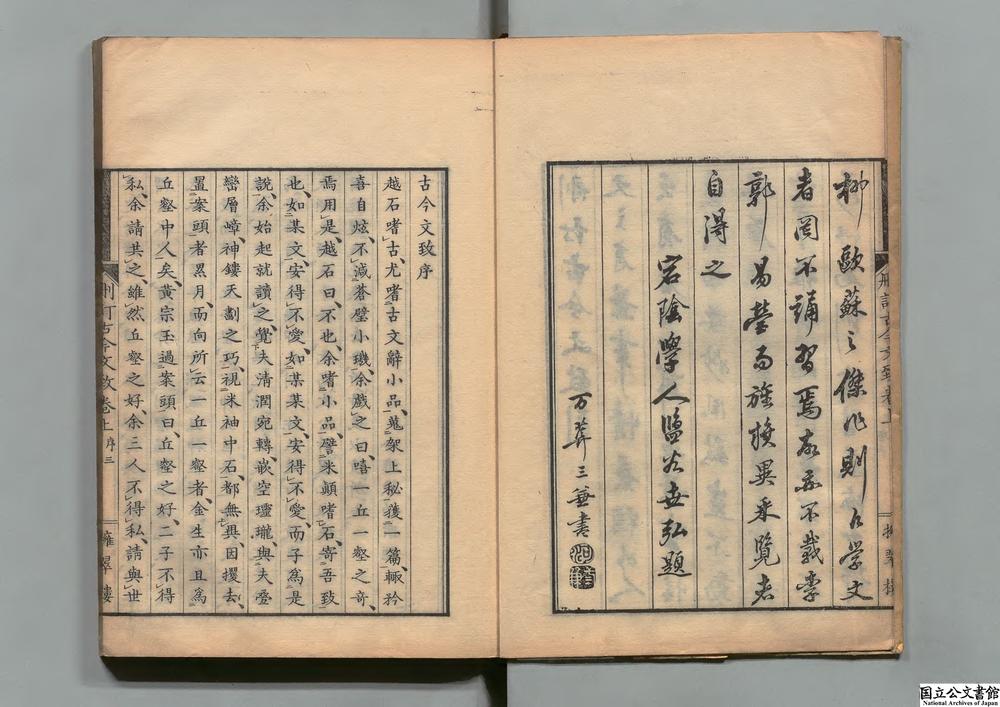 柳歐蘇之傑作則凡學文
者罔不誦習焉故亦不載李
郭易營而旌旗異采覽者
自得之
宕陰學人鹽谷世弘題
万葊三兼書
刪訂古今文致卷上
擁翠樓
古今文致序
越石嗜古、尤嗜古文辭小品、蒐架上秘獲一篇、輒矜
喜自炫、不減蒼璧小璣、余戲之曰、嘻一丘一壑之奇、
焉用是、越石曰、不也、余嗜小品、譬米顛嗜石、寄吾致
也、如某文、安得不愛、如某某文、安得不愛、而子爲是
說、余始起就讀之、覺夫清潤宛轉、嵌空瓏瓏、與夫叠
巒層嶂、神鏤天劃之巧、視米袖中石、都無異、因攫去、
置案頭者累月、而向所云一丘一壑者、金生亦且爲
丘壑中人矣、黃宗玉過案頭曰、丘壑之好、二子不得
私、余請共之、雖然丘壑之好、余三人不得私、請與世
刪訂古今文致卷上 序三
擁翠樓
国立公文書館
National Archives of Japan